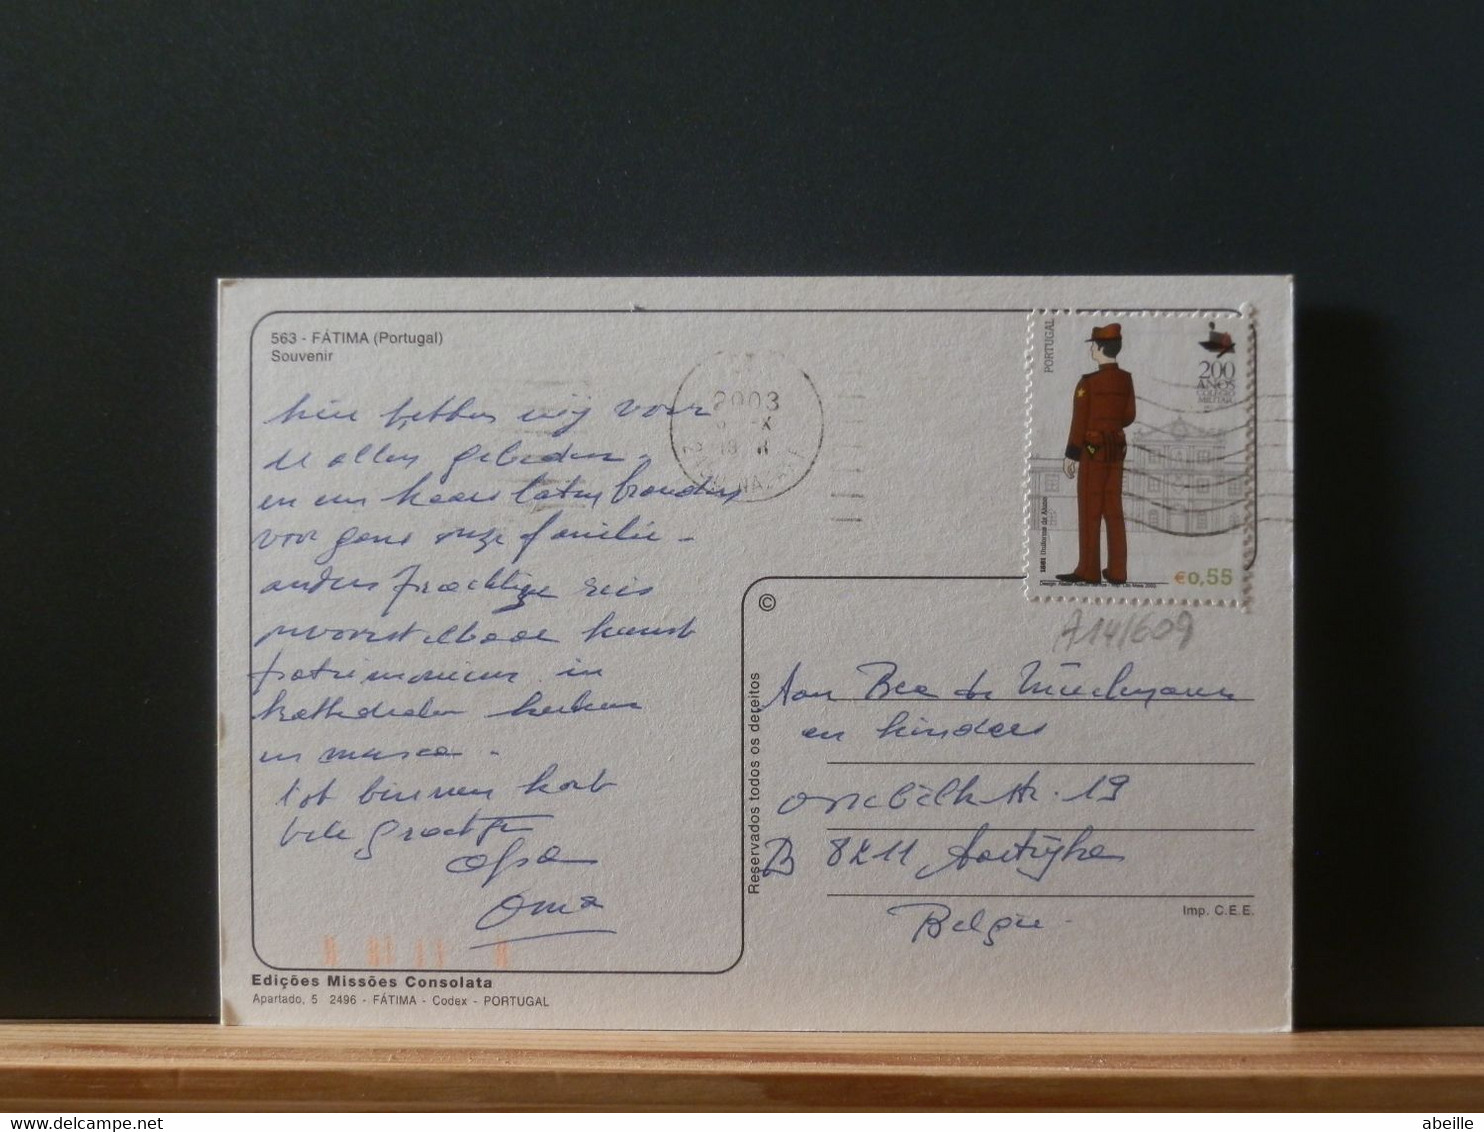 563 - FÁTIMA (Portugal)
Souvenir
hier hebben wij voor
de allen gebeden -
en een kaars laten branden
voor gans onze familie -
anders prachtige reis
onvoorstelbaar kunst
patrimonium in
kathedralen kerken
en musea -
tot binnen kort
vele groetjes
Opa
Oma
Edições Missões Consolata
Apartado, 5 2496 - FÁTIMA - Codex - PORTUGAL
2003
PORTUGAL
200
ANOS
COLÉGIO
MILITAR
€0,55
A14/609
©
Reservados todos os dereitos
Aan Bea de
en kinders
str. 19
B 8211 Aartrijke
België -
Imp. C.E.E.
abeille